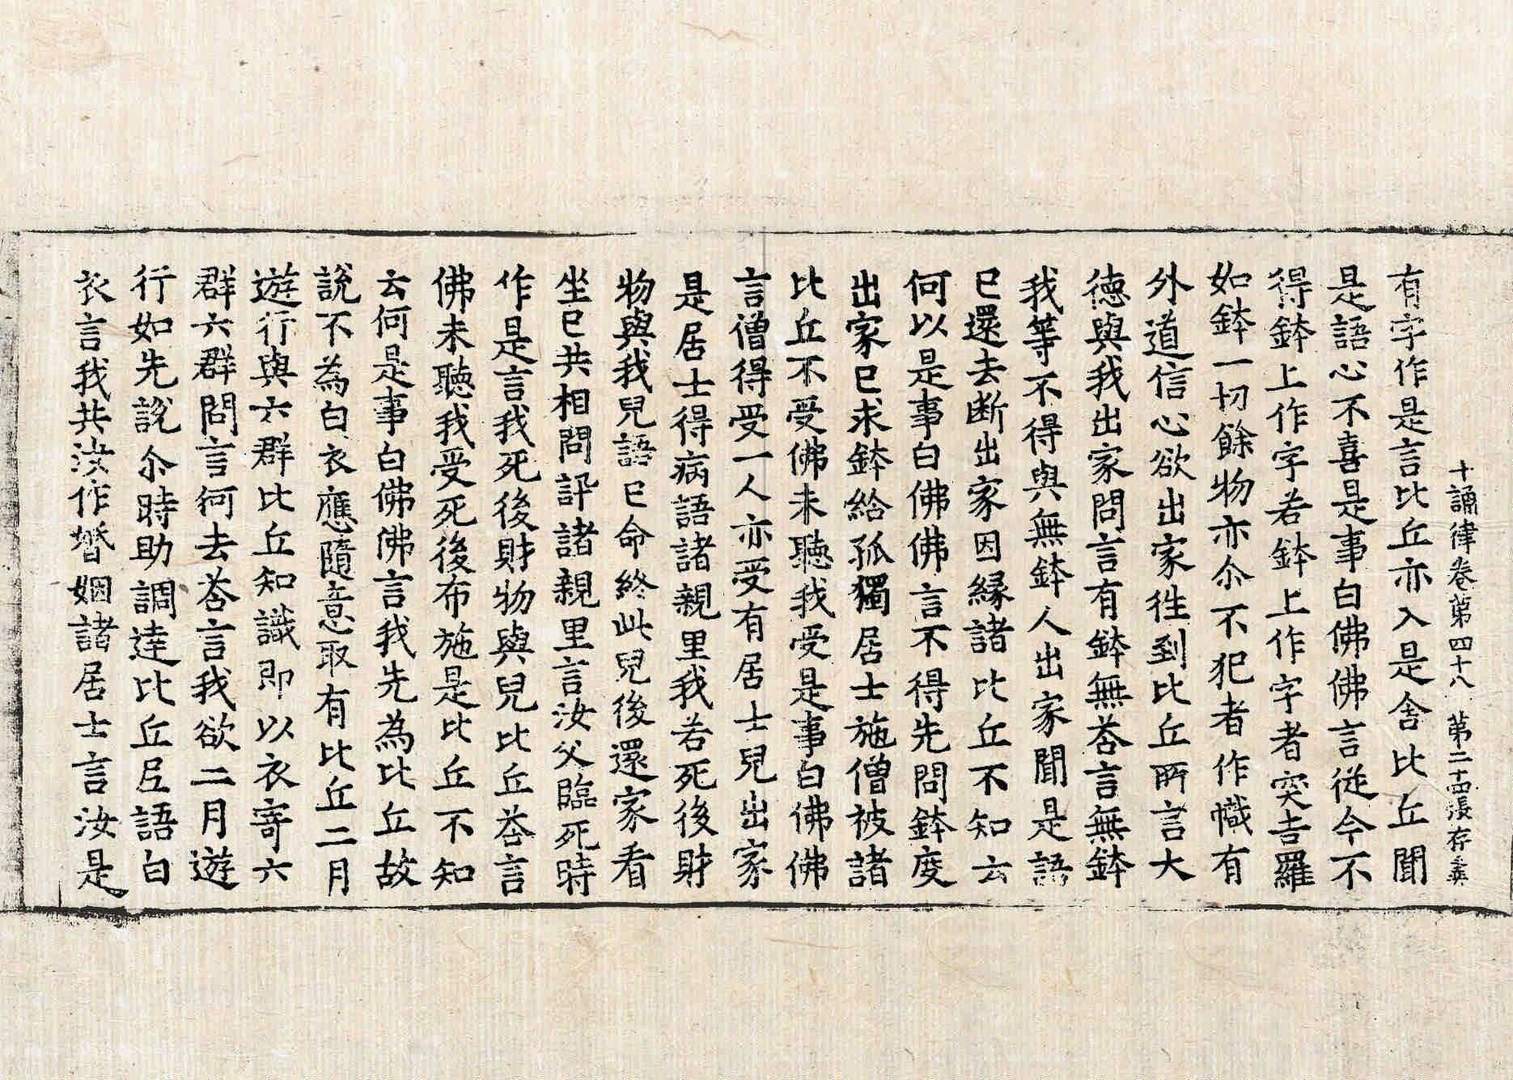 十誦律卷第四十八　第二十四張存彛
有字作是言比丘亦入是舍比丘聞
是語心不喜是事白佛佛言從今不
得鉢上作字若鉢上作字者突吉羅
如鉢一切餘物亦尒不犯者作幟有
外道信心欲出家徃到比丘所言大
德與我出家問言有鉢無荅言無鉢
我等不得與無鉢人出家聞是語
已還去断出家因緣諸比丘不知云
何以是事白佛佛言不得先問鉢度
出家已求鉢給孤獨居士施僧被諸
比丘不受佛未聽我受是事白佛佛
言僧得受一人亦受有居士兒出家
是居士得病語諸親里我若死後財
物與我兒語已命終此兒後還家看
坐已共相問訊諸親里言汝父臨死時
作是言我死後財物與兒比丘荅言
佛未聽我受死後布施是比丘不知
云何是事白佛佛言我先為比丘故
說不為白衣應隨意取有比丘二月
遊行與六群比丘知識即以衣寄六
群六群問言何去荅言我欲二月遊
行如先說尒時助調達比丘尼語白
衣言我共汝作婚姻諸居士言汝是